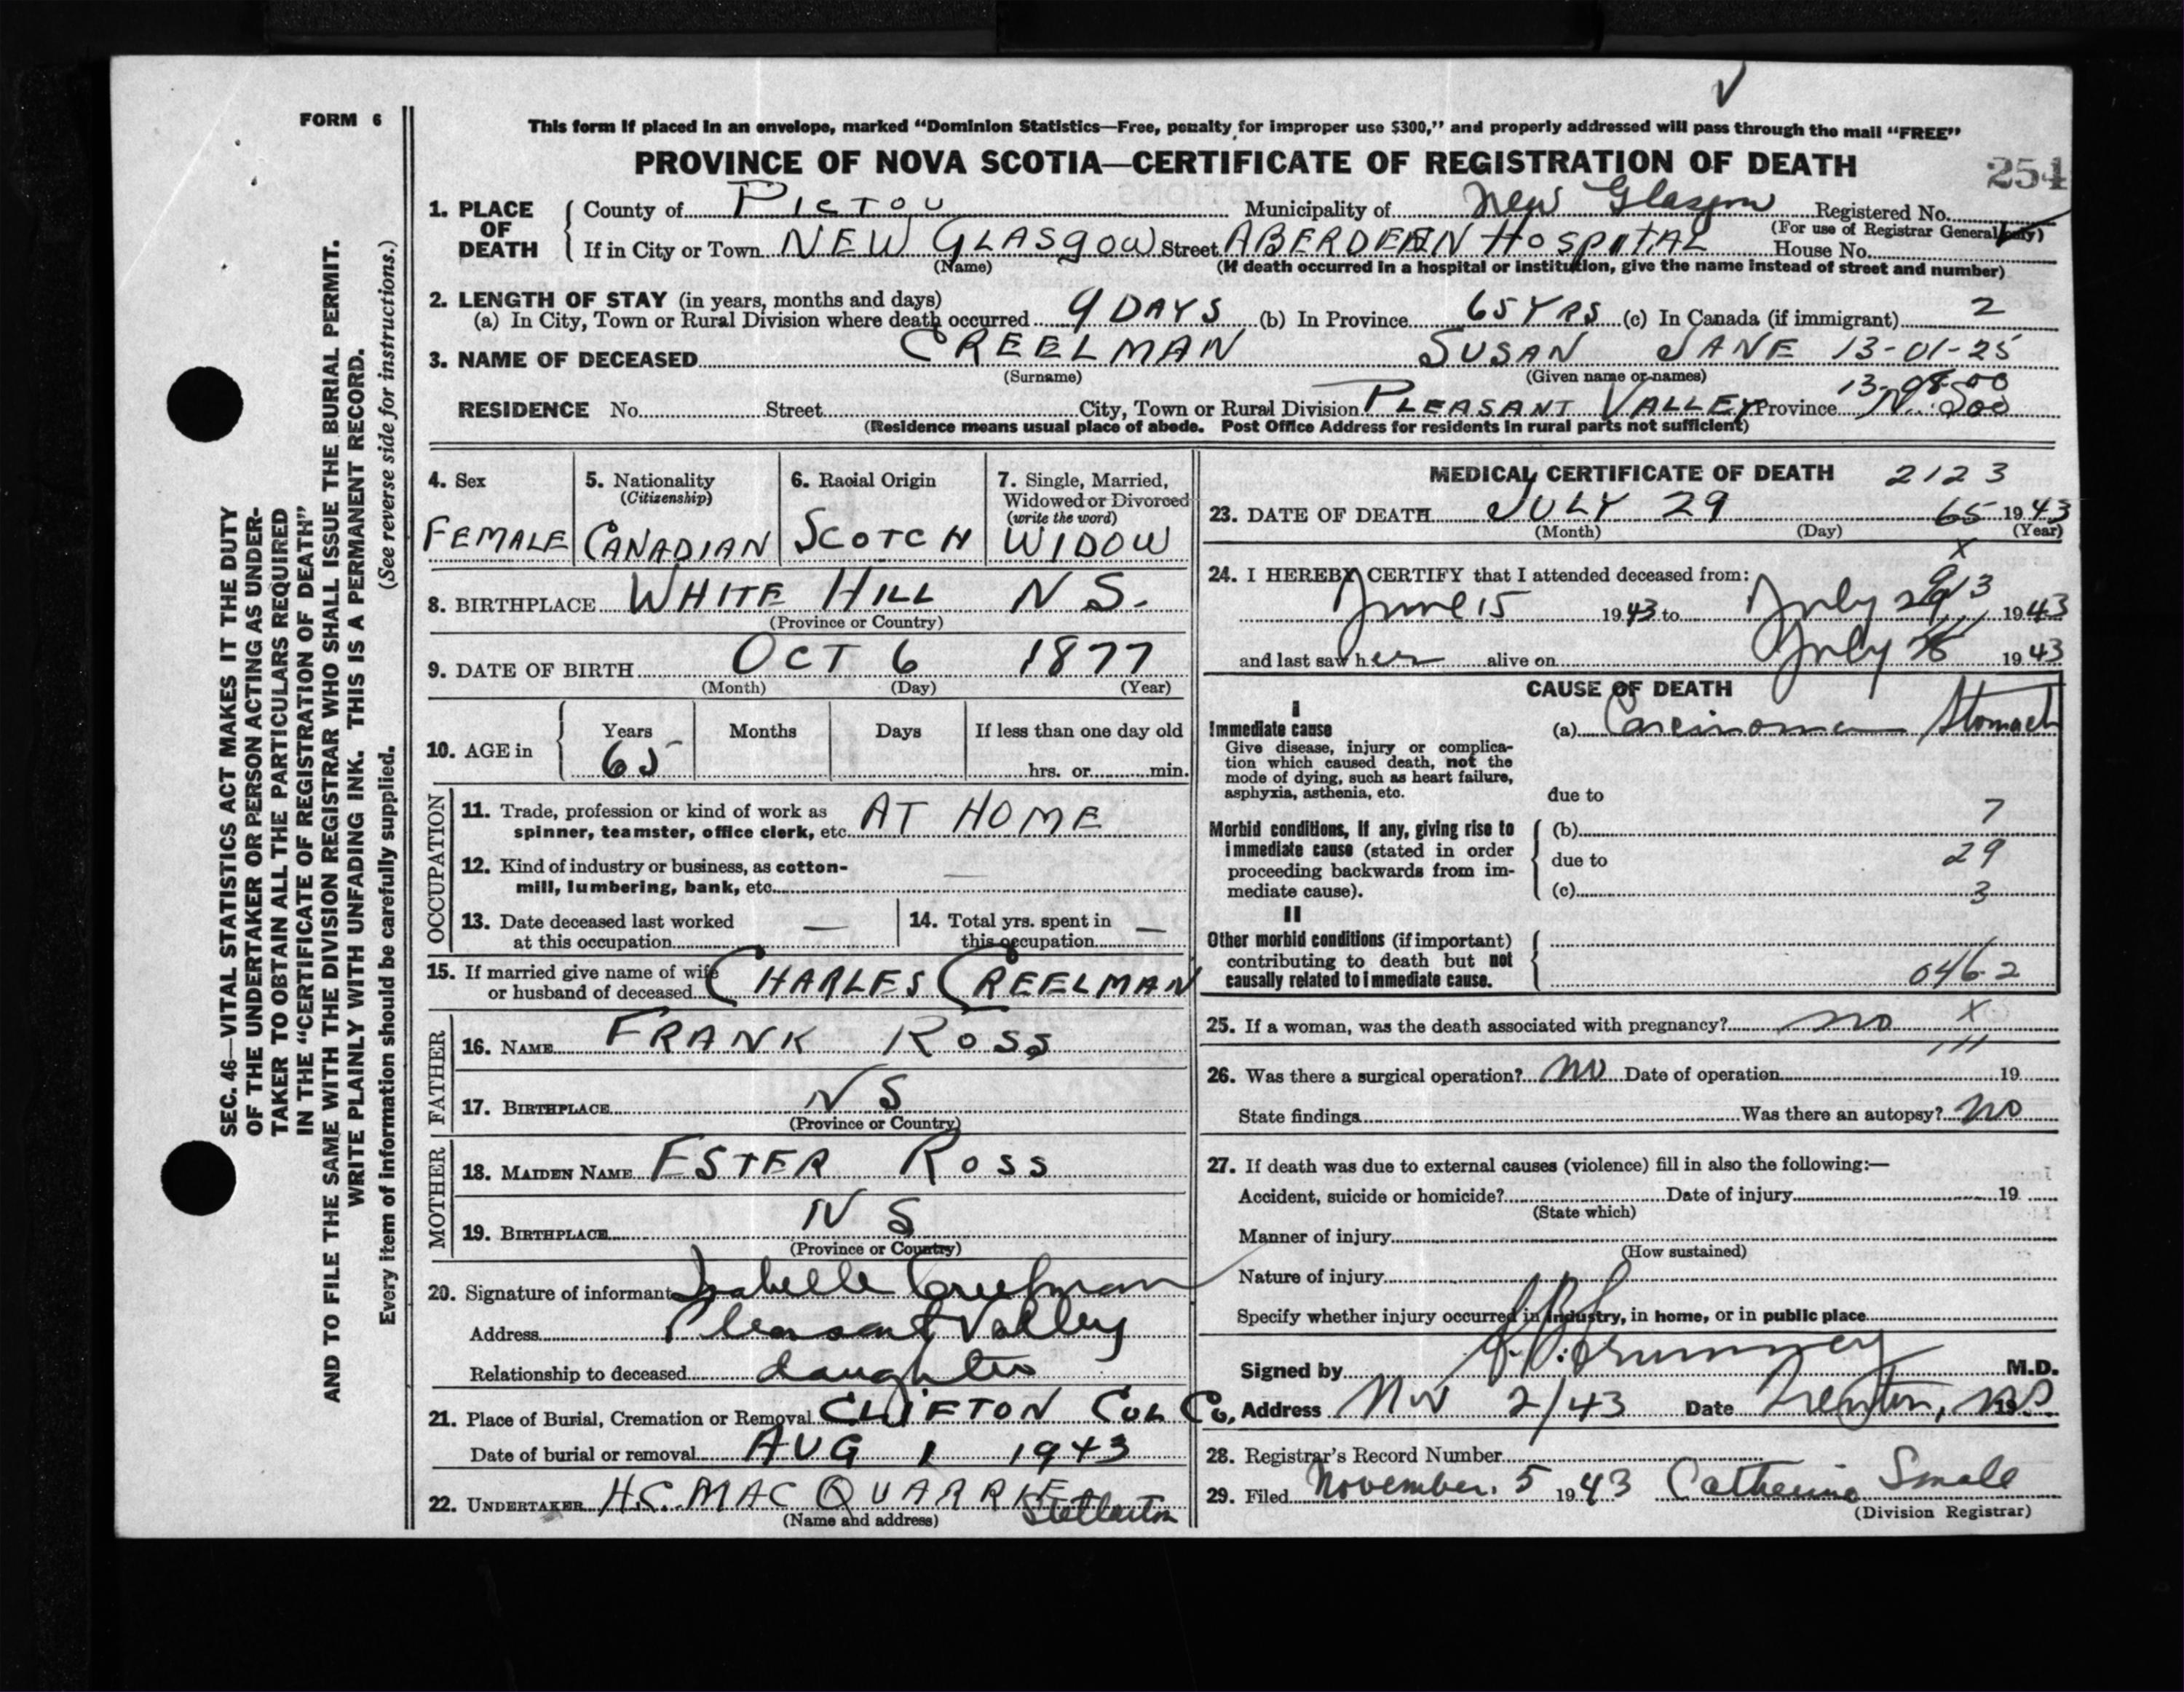 FORM 6
This form if placed in an envelope, marked “Dominion Statistics—Free, penalty for improper use $300,” and properly addressed will pass through the mail “FREE”
PROVINCE OF NOVA SCOTIA—CERTIFICATE OF REGISTRATION OF DEATH
254
1. PLACE OF DEATH
County of PICTOU Municipality of New Glasgow Registered No.
(For use of Registrar General only)
If in City or Town NEW GLASGOW Street ABERDEEN HOSPITAL House No.
(Name) (If death occurred in a hospital or institution, give the name instead of street and number)
2. LENGTH OF STAY (in years, months and days)
(a) In City, Town or Rural Division where death occurred 9 DAYS (b) In Province 65 YRS (c) In Canada (if immigrant) 2
3. NAME OF DECEASED CREELMAN SUSAN JANE 13-01-25
(Surname) (Given name or names)
13-08-00
RESIDENCE No. Street City, Town or Rural Division PLEASANT VALLEY Province N.
(Residence means usual place of abode. Post Office Address for residents in rural parts not sufficient)
4. Sex FEMALE
5. Nationality (Citizenship) CANADIAN
6. Racial Origin SCOTCH
7. Single, Married, Widowed or Divorced (write the word) WIDOW
8. BIRTHPLACE WHITE HILL N S.
(Province or Country)
9. DATE OF BIRTH OCT 6 1877
(Month) (Day) (Year)
10. AGE in Years 65 Months Days If less than one day old
hrs. or min.
OCCUPATION
11. Trade, profession or kind of work as
spinner, teamster, office clerk, etc. AT HOME
12. Kind of industry or business, as cotton-
mill, lumbering, bank, etc. —
13. Date deceased last worked
at this occupation —
14. Total yrs. spent in
this occupation —
15. If married give name of wife
or husband of deceased CHARLES CREELMAN
FATHER
16. NAME FRANK ROSS
17. BIRTHPLACE N S
(Province or Country)
MOTHER
18. MAIDEN NAME ESTER ROSS
19. BIRTHPLACE N S
(Province or Country)
20. Signature of informant Isabelle Creelman
Address Pleasant Valley
Relationship to deceased daughter
21. Place of Burial, Cremation or Removal CLIFTON COL CO.
Date of burial or removal AUG 1 1943
22. UNDERTAKER H.C. MAC QUARRIE Stellarton
(Name and address)
MEDICAL CERTIFICATE OF DEATH 2123
23. DATE OF DEATH JULY 29 65 1943
(Month) (Day) (Year)
24. I HEREBY CERTIFY that I attended deceased from:
June 15 1943 to July 29 1943
and last saw her alive on July 1943
CAUSE OF DEATH
I
Immediate cause (a) Carcinoma Stomach
Give disease, injury or complica-
tion which caused death, not the
mode of dying, such as heart failure,
asphyxia, asthenia, etc.
due to
7
Morbid conditions, if any, giving rise to (b)
immediate cause (stated in order due to 29
proceeding backwards from im-
mediate cause). (c) 3
II
Other morbid conditions (if important)
contributing to death but not
causally related to immediate cause. 046.2
25. If a woman, was the death associated with pregnancy? no X
111
26. Was there a surgical operation? no Date of operation 19
State findings Was there an autopsy? no
27. If death was due to external causes (violence) fill in also the following:—
Accident, suicide or homicide? Date of injury 19
(State which)
Manner of injury
(How sustained)
Nature of injury
Specify whether injury occurred in industry, in home, or in public place
Signed by M.D.
Address Nov 2/43 Date Trenton, N.S. 19
28. Registrar's Record Number
29. Filed November. 5 1943 Catherine Smale
(Division Registrar)
SEC. 46—VITAL STATISTICS ACT MAKES IT THE DUTY
OF THE UNDERTAKER OR PERSON ACTING AS UNDER-
TAKER TO OBTAIN ALL THE PARTICULARS REQUIRED
IN THE “CERTIFICATE OF REGISTRATION OF DEATH”
AND TO FILE THE SAME WITH THE DIVISION REGISTRAR WHO SHALL ISSUE THE BURIAL PERMIT.
WRITE PLAINLY WITH UNFADING INK. THIS IS A PERMANENT RECORD.
Every item of information should be carefully supplied. (See reverse side for instructions.)